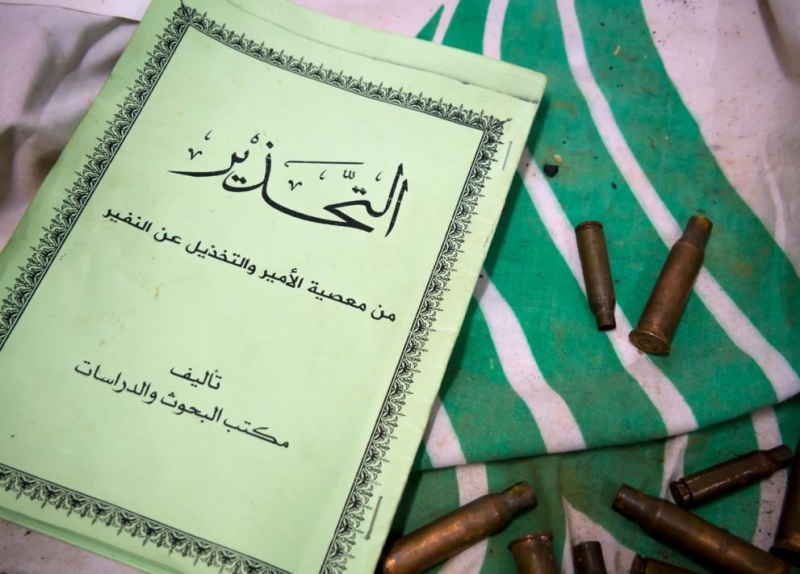 التَّحذير
من معصية الأمير والتخذيل عن النفير
تأليف
مكتب البحوث والدراسات